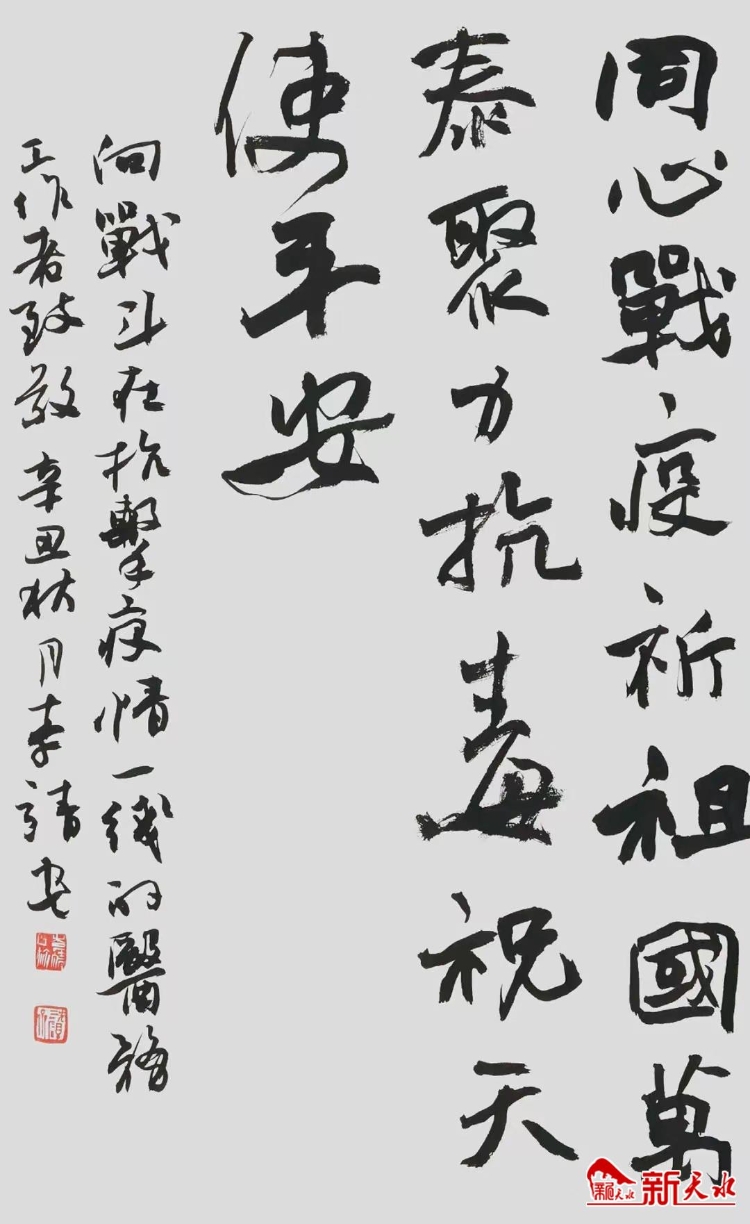 同心戰疫祈祖國萬
泰聚力抗毒祝天
使平安
向戰斗在抗擊疫情一綫的醫務
工作者致敬 辛丑秋月李靖
新天水
新天水